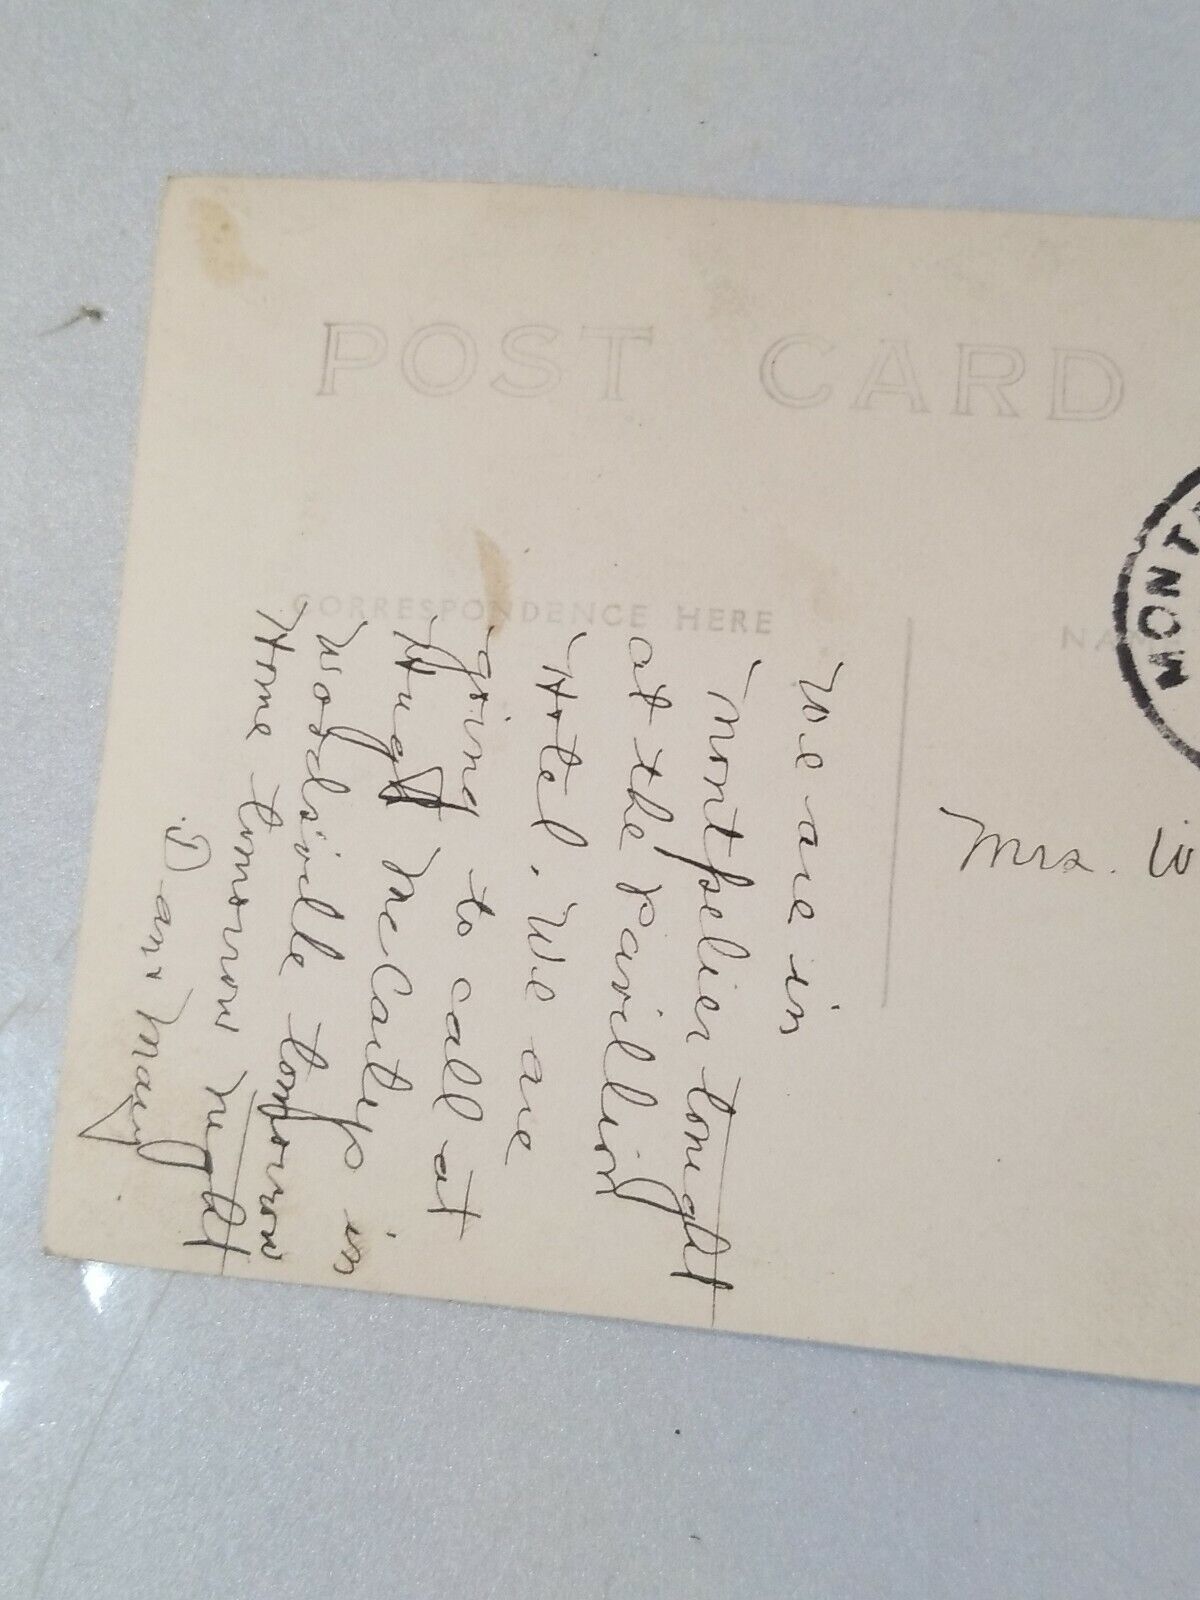 POST CARD
CORRESPONDENCE HERE
We are in
Montpelier tonight
at the Pavillion
Hotel. We are
going to call at
Hugh McCarleys in
Woodsville tomorrow
Home tomorrow night
Dan & Mary.
NA
MONT
Mrs. W